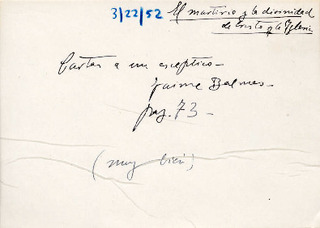 3/22/52
El martirio y la divinidad
de Cristo y la Iglesia
Cartas a un esceptico -
Jaime Balmes -
pag. 73 -
(muy bien)